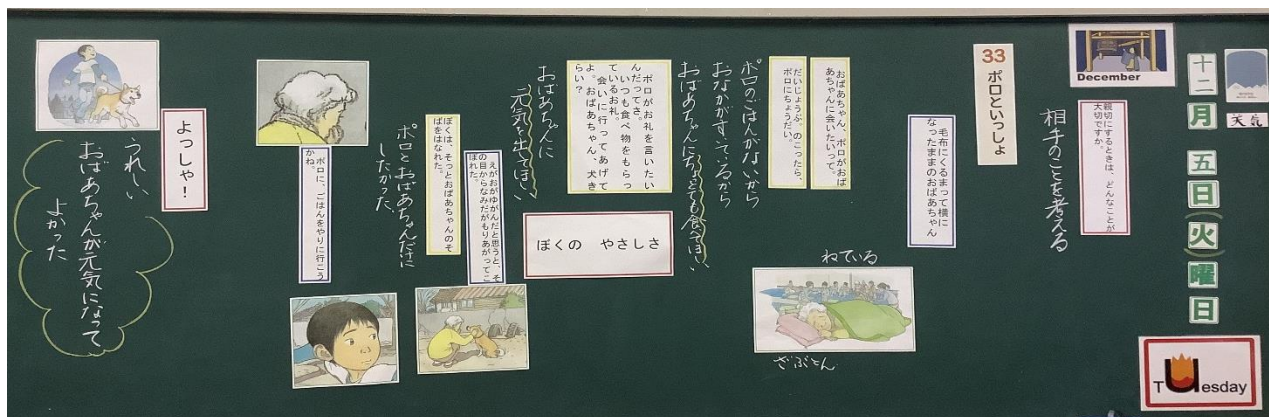 十二月五日(火)曜日
天気
December
Tuesday
親切にするときは、どんなことが
大切ですか。
相手のことを考える
33 ポロといっしょ
毛布にくるまって横に
なったままのおばあちゃん
ねている
ざぶとん
おばあちゃん、ポロがおば
あちゃんに会いたいって。
だいじょうぶ。のこったら、
ポロにちょうだい。
ポロのごはんがないから
おなかがすいているから
おばあちゃんにちょっとでも食べてほしい
ぼくの やさしさ
ポロがお礼を言いたい
んだってさ。
いつも食べ物をもらっ
ているお礼。
会いに行ってあげて
よ。おばあちゃん、犬き
らい?
おばあちゃんに
元気を出してほしい
えがおがゆがんだと思うと、そ
の目からなみだがもりあがってこ
ぼれた。
ぼくは、そっとおばあちゃんのそ
ばをはなれた。
ポロとおばあちゃんだけに
したかった。
ポロに、ごはんをやりに行こう
かね。
よっしゃ!
うれしい
おばあちゃんが元気になって
よかった